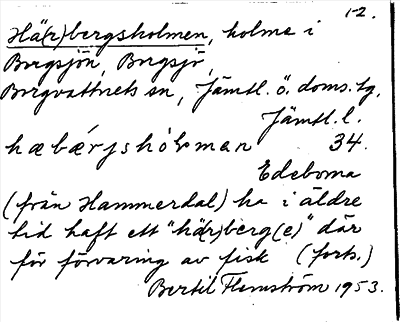 1-2.
Hä(r)bergsholmen, holme i
Borgsjön, Borgsjö,
Borgvattnets sn, Jämtl. ö. doms. tg,
Jämtl. l.
hæbǽrjshólman 34.
Edeborna
(från Hammerdal) ha i äldre
tid haft ett "hä(r)berg(e)" där
för förvaring av fisk (forts.)
Bertil Flemström 1953.